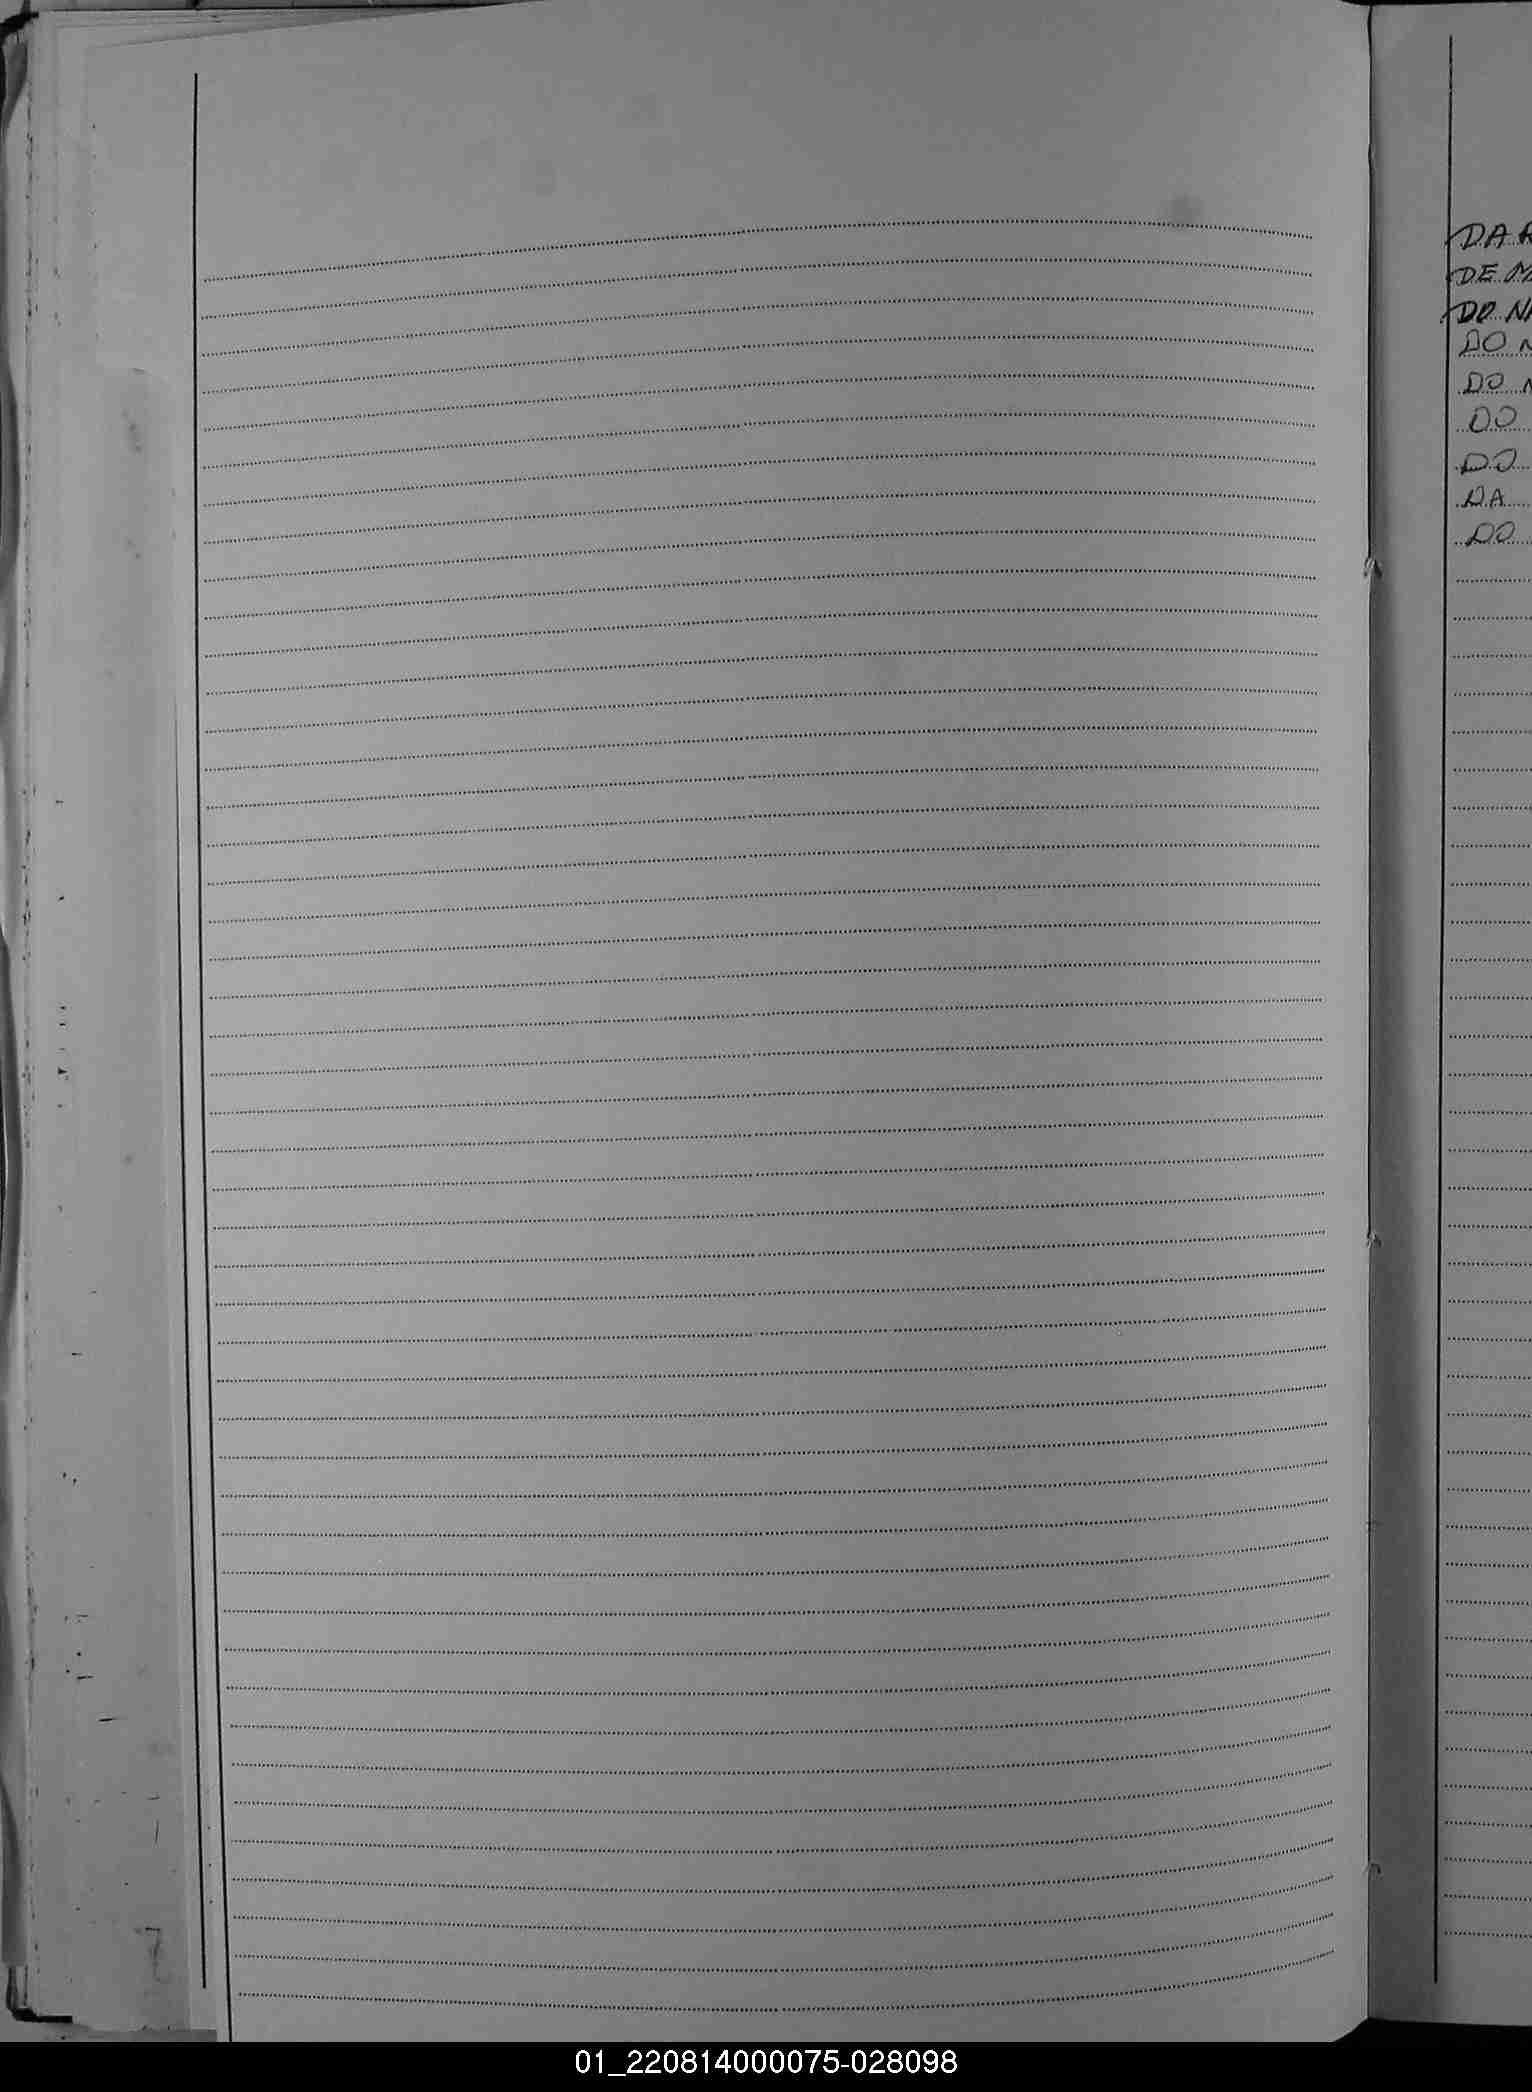 DA
DE
DO
DO
DO
DO
DO
DA
DO
01_220814000075-028098